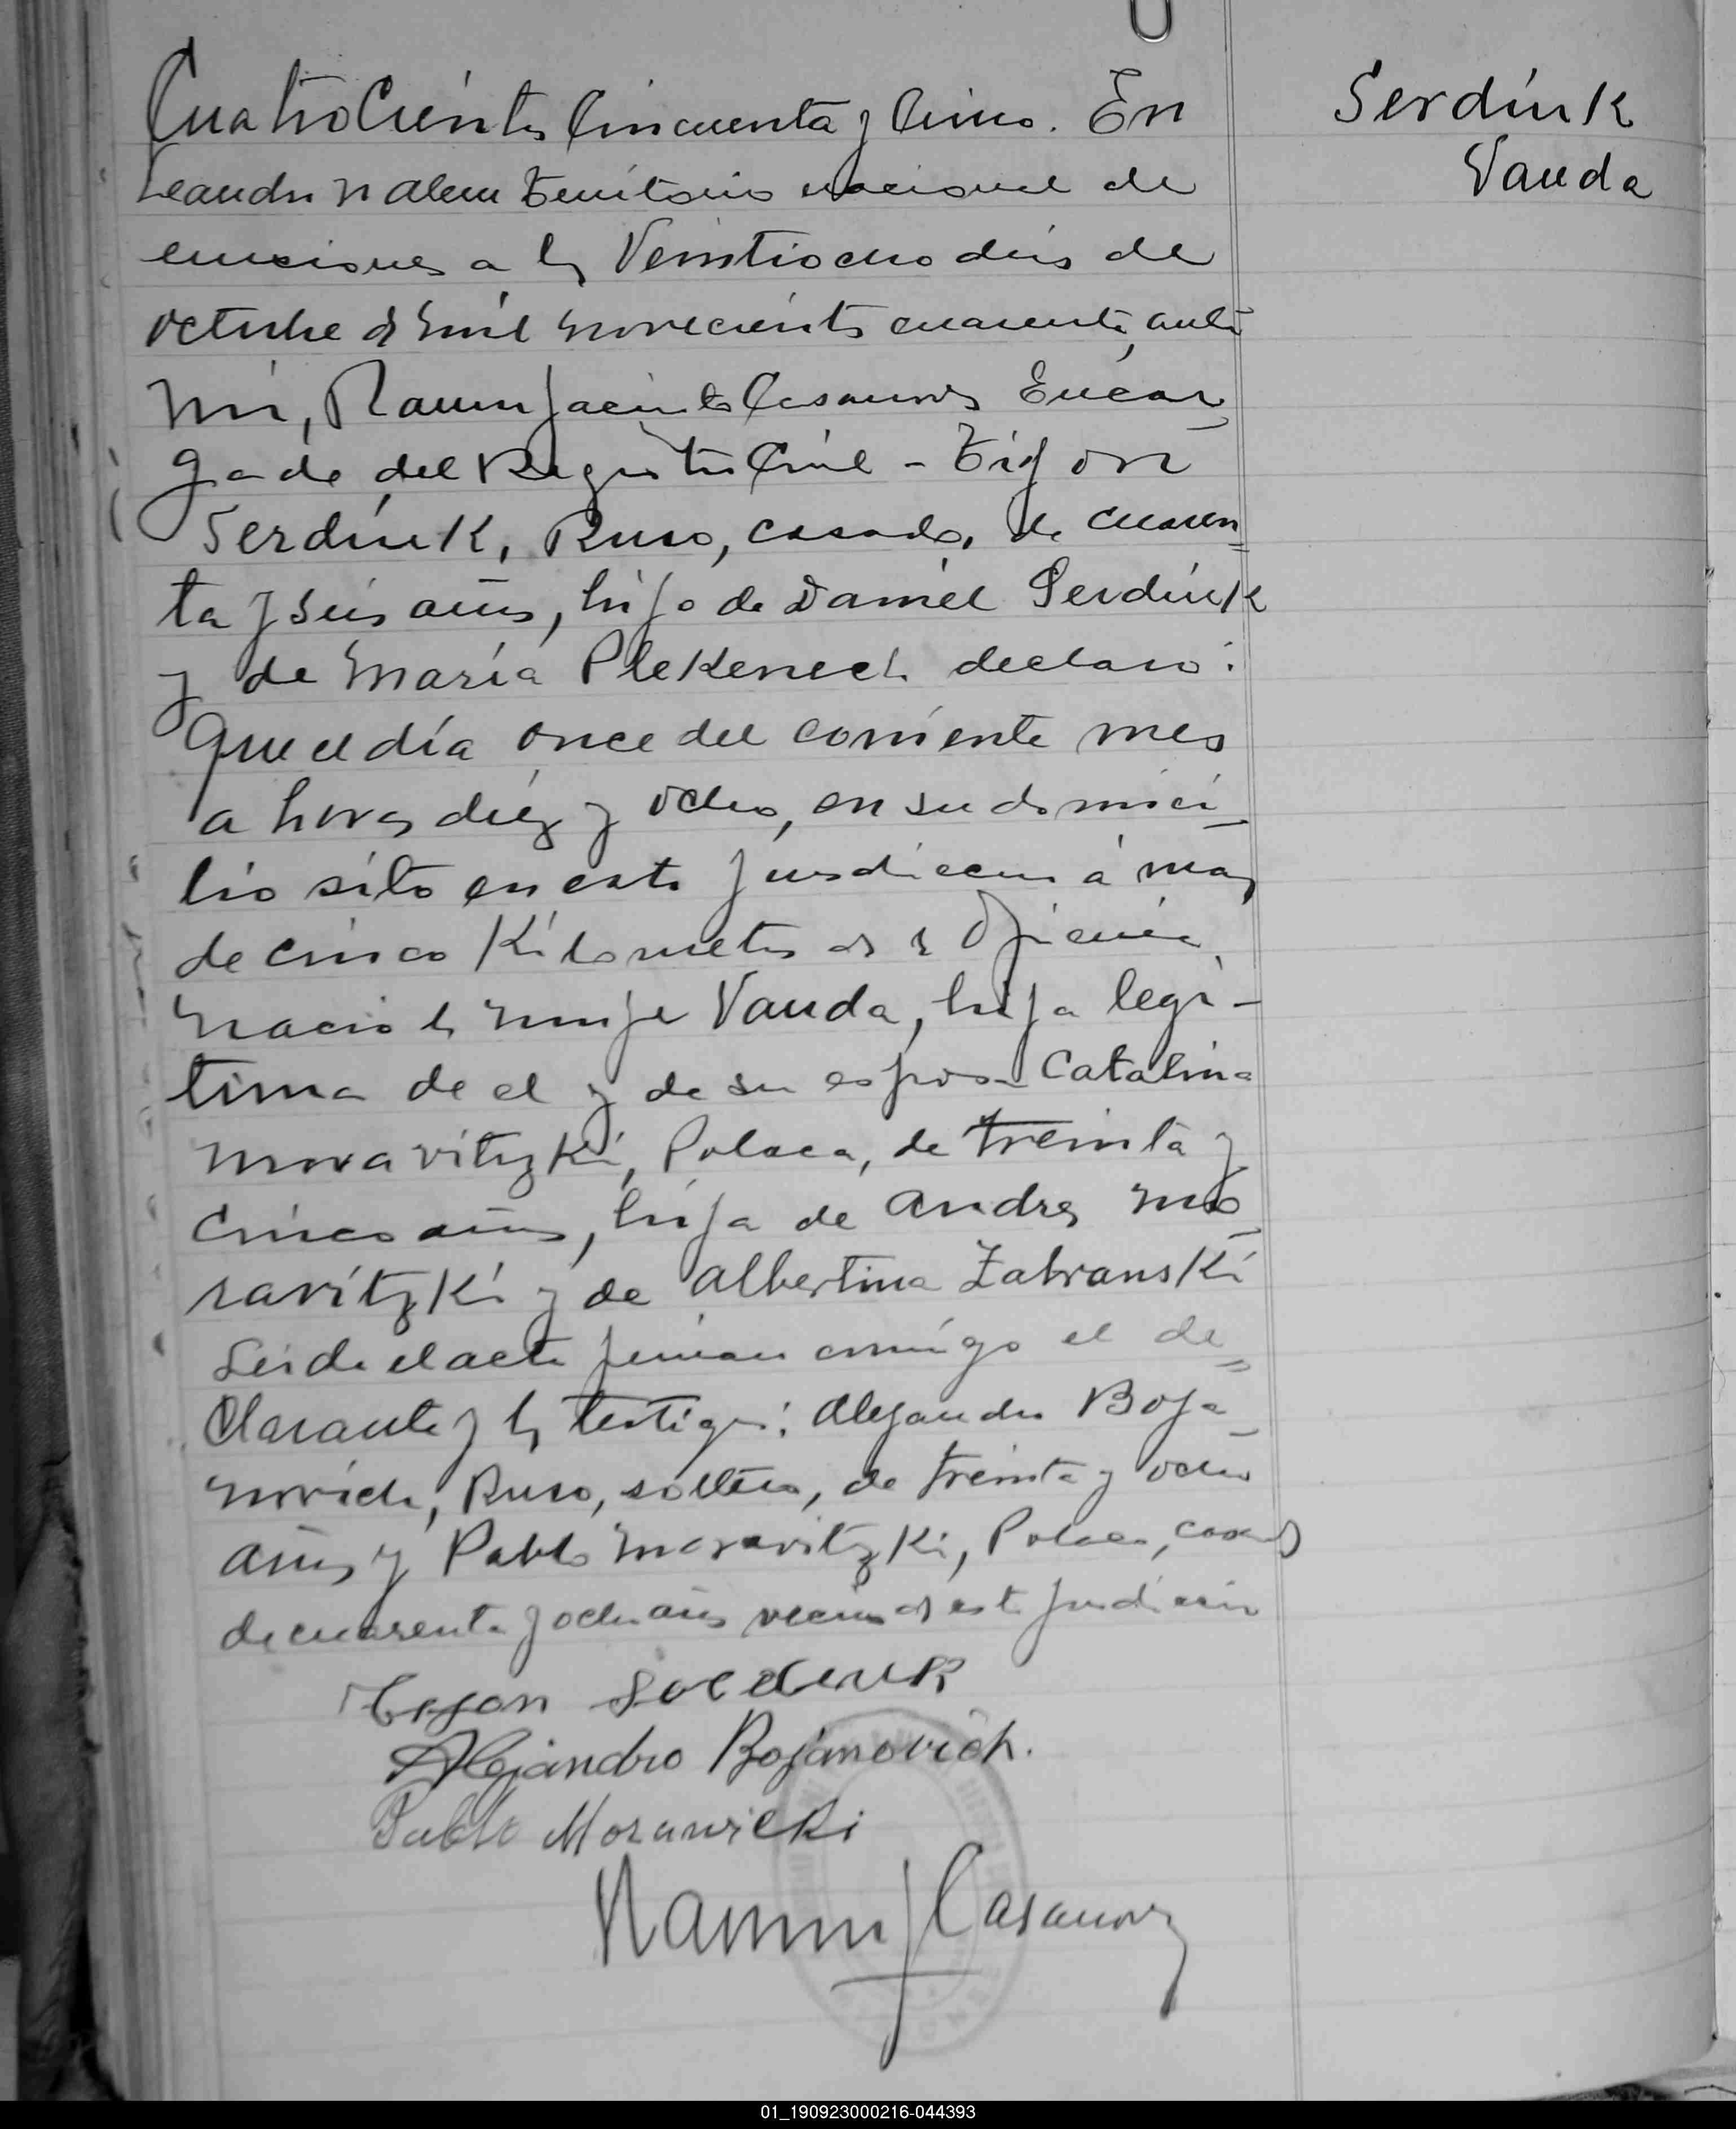 Cuatrocientos Cincuenta y Cinco. En
Leandro N Alem Territorio nacional de
Misiones a los Veintiocho dias de
octubre de mil novecientos cuarenta, ante
mi, Ramon Jacinto Casanova Encar-
gado del Registro Civil - Trifon
Serdiuk, Ruso, casado, de cuaren=
ta y seis años, hijo de Daniel Serdiuk
y de María Plekenech declaro:
Que el día once del corriente mes
a horas diez y ocho, en su domici-
lio sito en esta Jurisdiccion á mas
de cinco Kilometros de la Oficina
nacio la mujer Vanda, hija legi-
tima de el y de su esposa Catalina
Moravitzki, Polaca, de treinta y
cinco años, hija de Andres Mo-
ravitzki y de Albertina Zabranski
Leida el acta firman conmigo el de=
clarante y los testigos: Alejandro Boja-
novich, Ruso, soltero, de treinta y ocho
años y Pablo Moravitzki, Polaco, casado
de cuarenta y ocho años vecinos de esta Jurisdiccion
Alejandro Bojanovich.
Pablo Morawicki
Ramon J Casanova
Serdiuk
Vanda
01_190923000216-044393